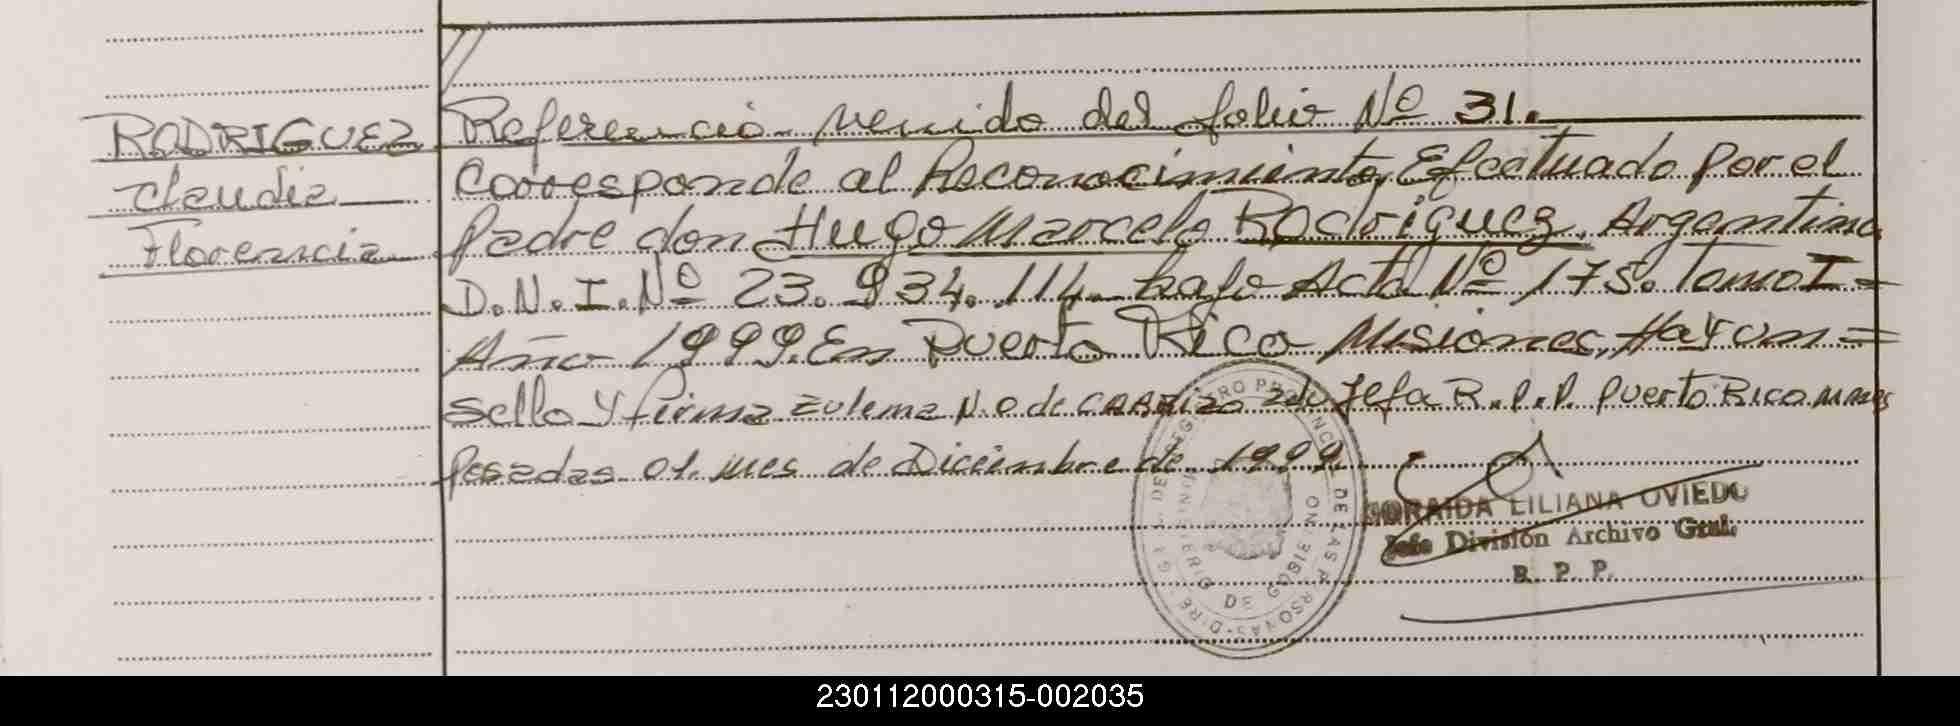 RODRIGUEZ
Claudia
Florencia
//
Referencia venido del folio Nº 31.
Corresponde al Reconocimiento, Efectuado Por el
Padre don Hugo Marcelo Rodriguez, Argentino
D.N.I. Nº 23.934.114 bajo Acta Nº 175. Tomo I =
Año 1999. En Puerto Rico Misiones, Hay un =
Sello y firma Zulema N. O de Jefa R.P.P. Puerto Rico
Posadas 01. mes de Diciembre de 1999.
SORAIDA LILIANA OVIEDO
Jefe División Archivo Gral.
R. P. P.
230112000315-002035